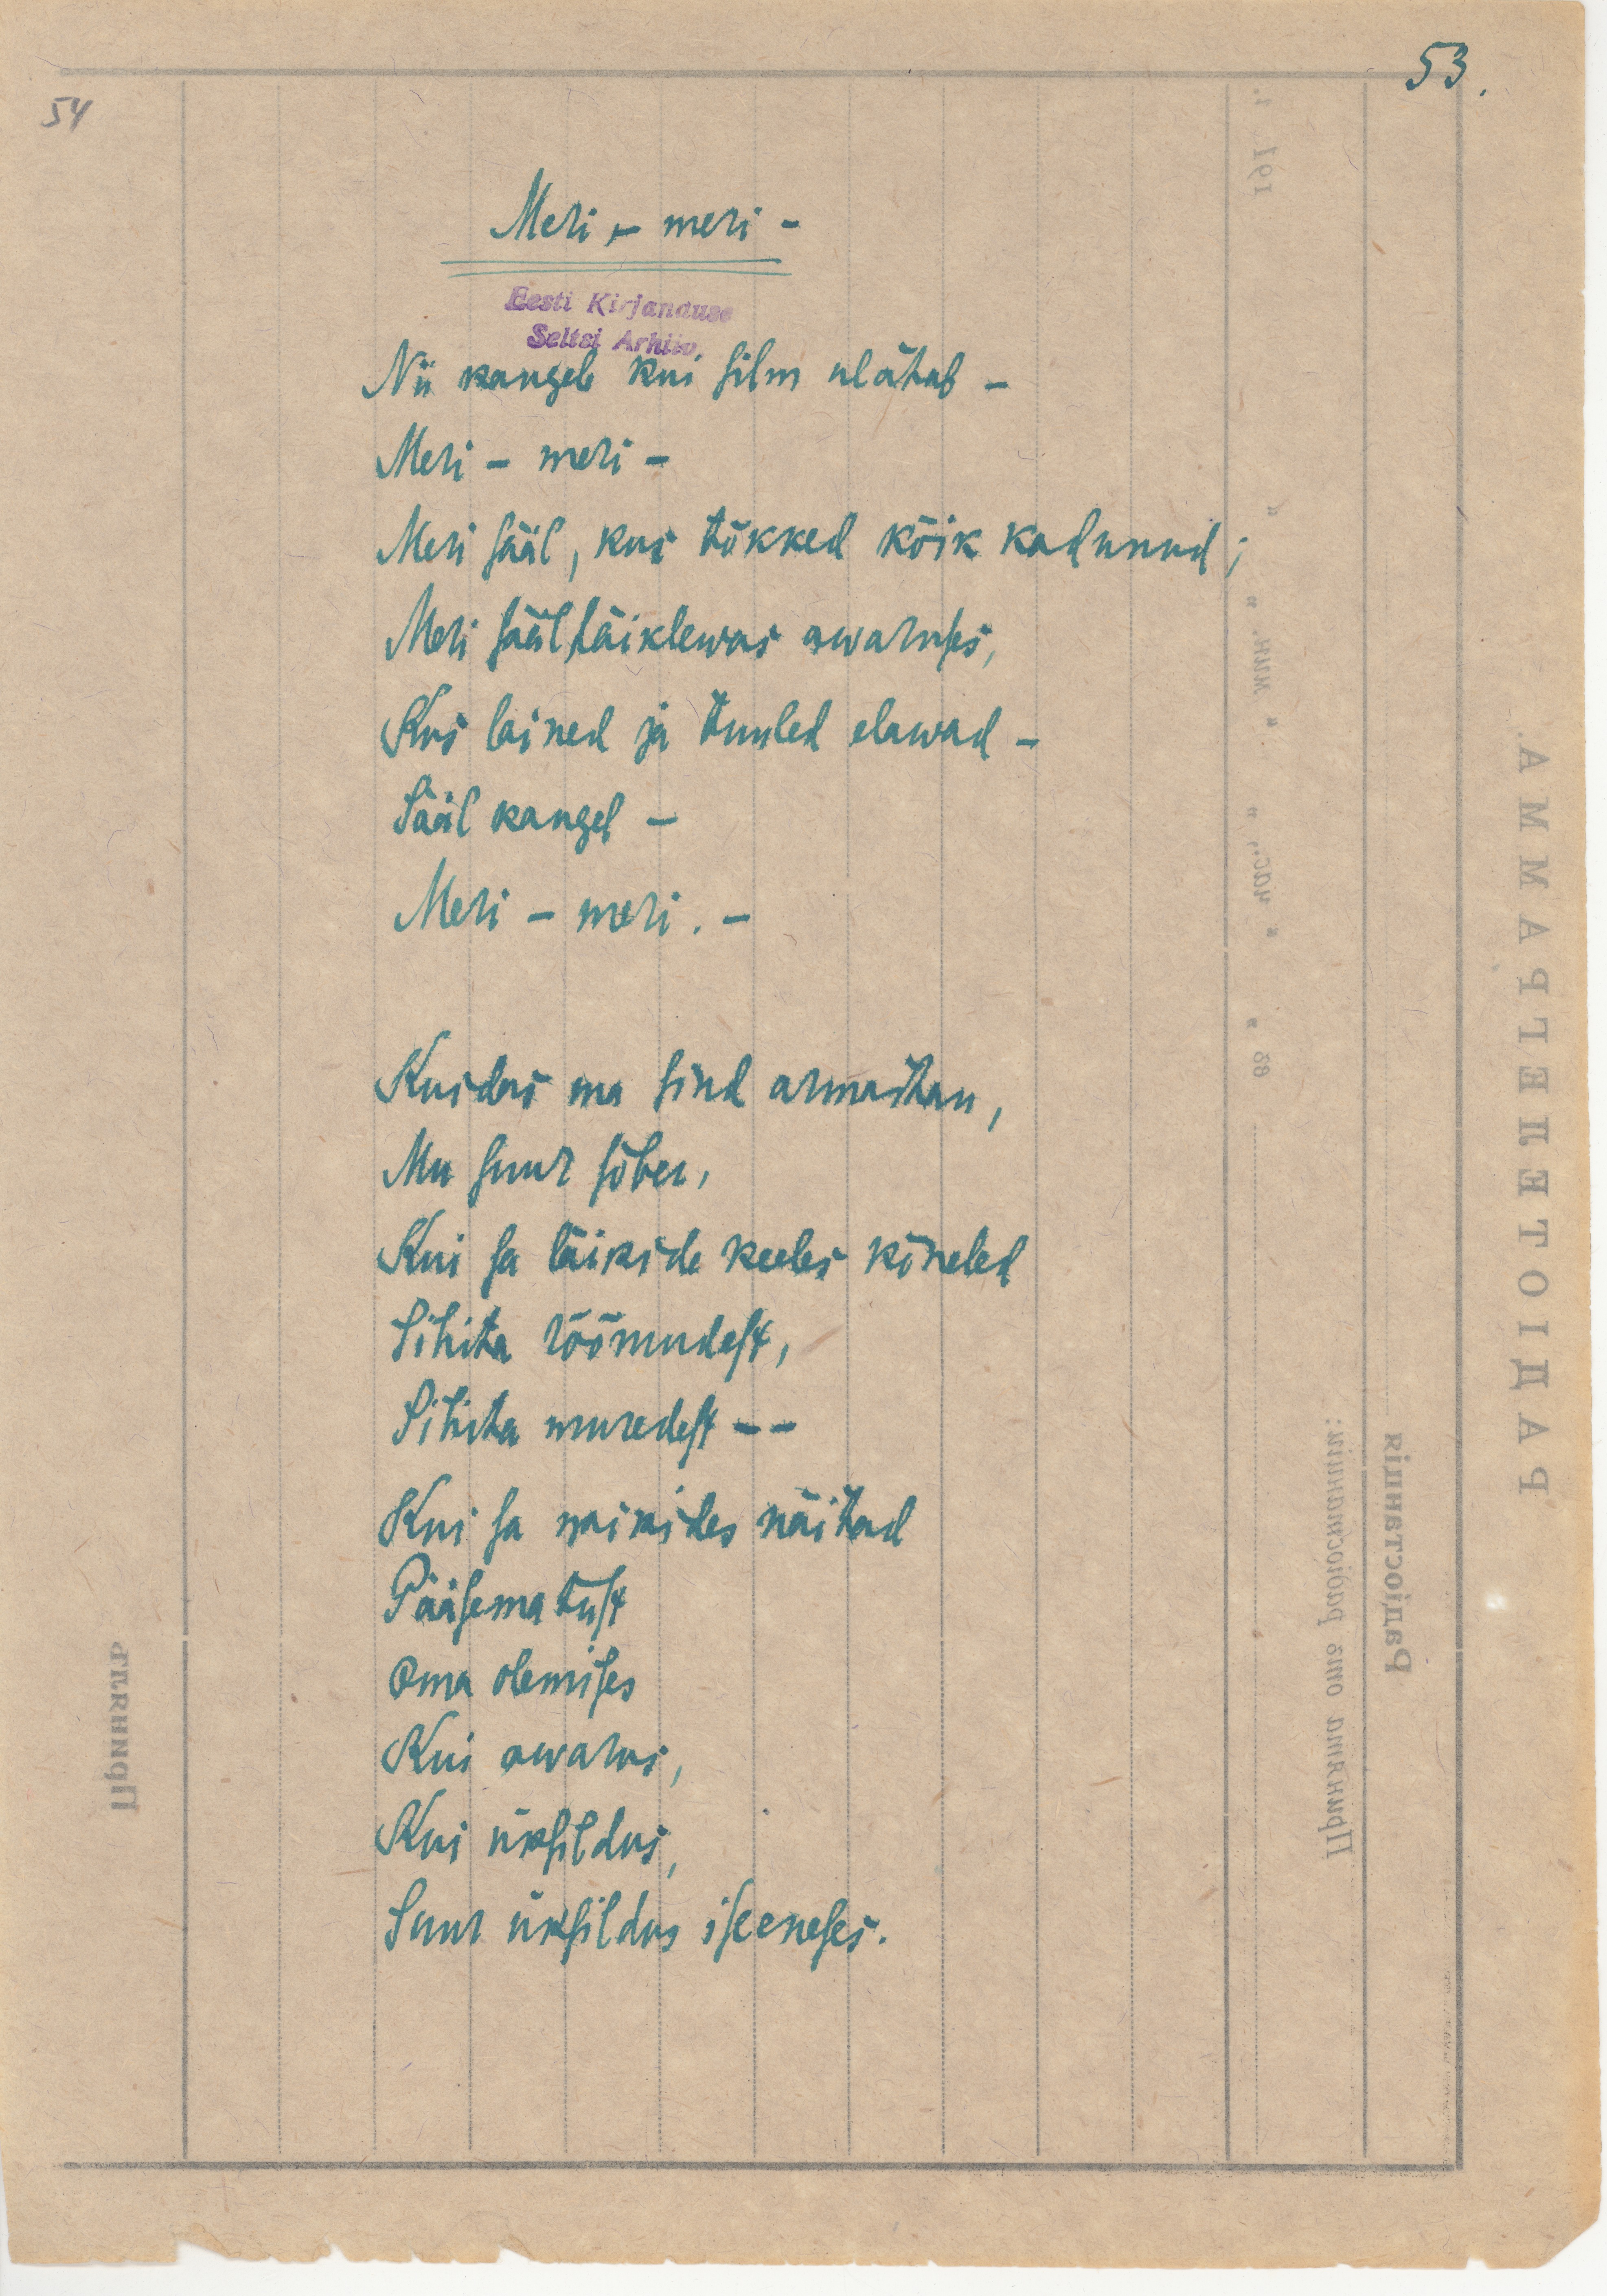 53.
54
Meri – meri –
Eesti Kirjanduse
Seltsi Arhiiv.
Nii kaugele kui silm ulätab –
Meri – meri –
Meri sääl, kus tõkked kõik kadunud;
Meri sääl läiklewas awaruses,
Kus lained ja tuuled elawad –
Sääl kaugel –
Meri – meri. –
Kuidas ma sind armastan,
Mu suur sõber,
Kui sa läikide keeles kõneled
Sihita rõõmudest,
Sihita muredest – –
Kui sa waikides näitad
Pääsematust
Oma olemises
Kui awarus,
Kui üksildus,
Suur üksildus iseeneses.
РАДІОТЕЛЕГРАММА.
Радіостанція
Принята отъ радіостанціи:
191 г.
" " мин. " " час., " "
Принялъ